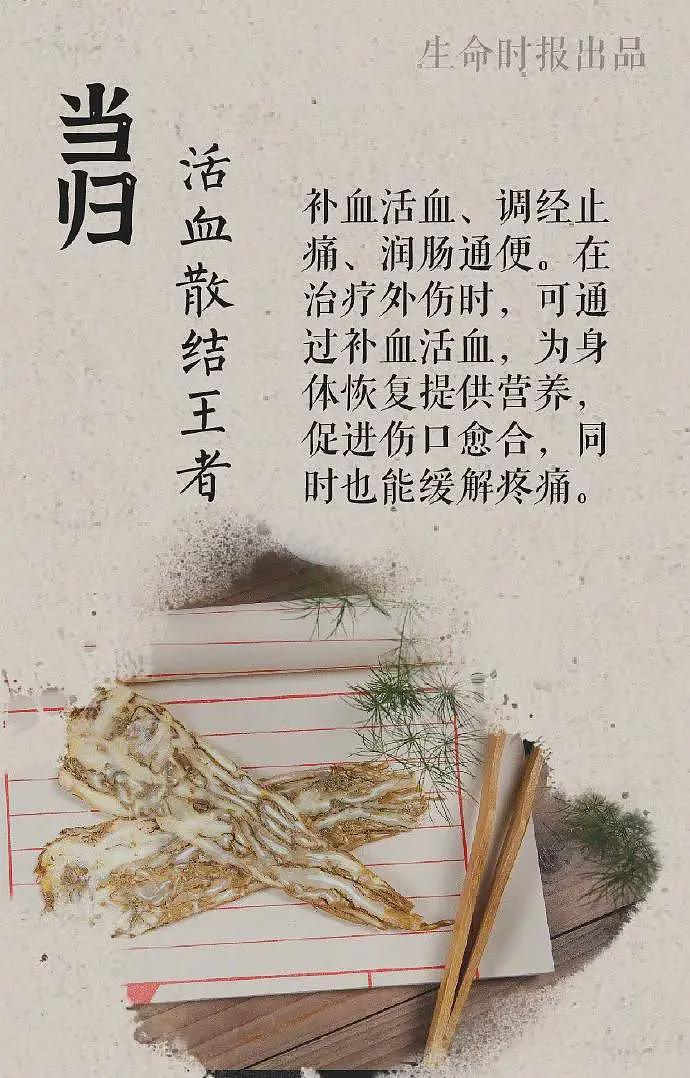 生命时报出品
当归
活血散结王者
补血活血、调经止
痛、润肠通便。在
治疗外伤时，可通
过补血活血，为身
体恢复提供营养，
促进伤口愈合，同
时也能缓解疼痛。